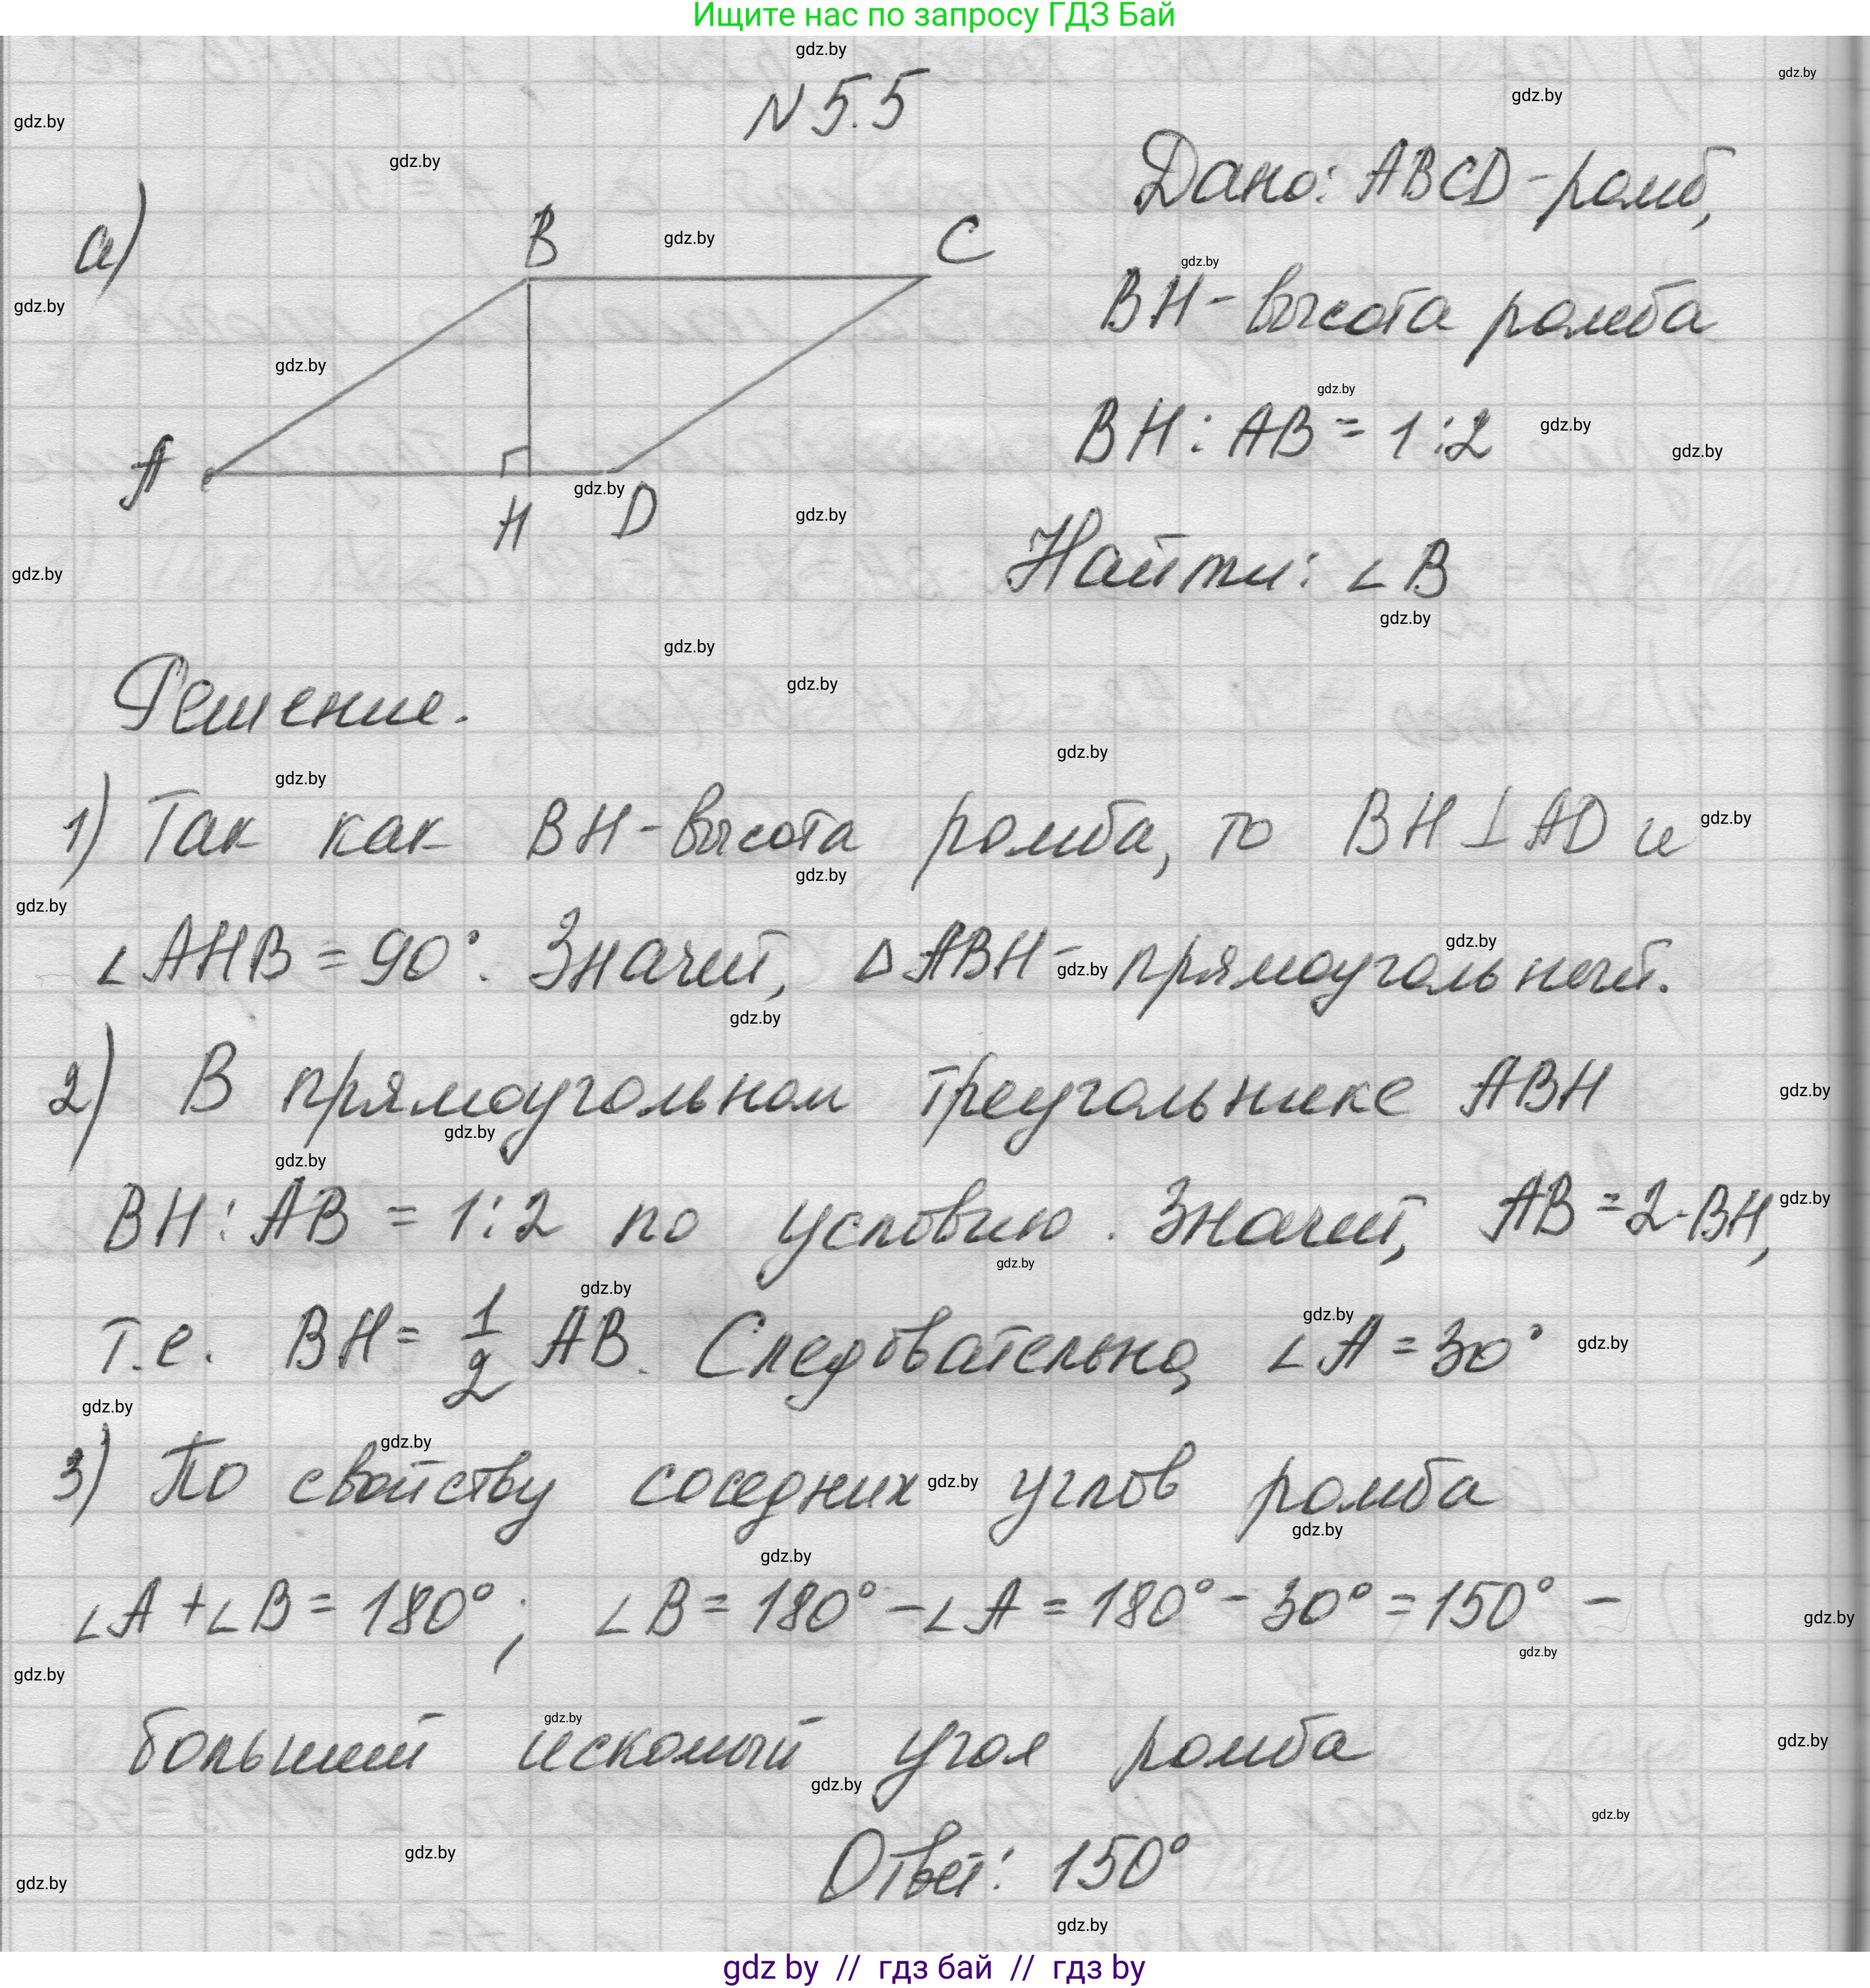 Ищите нас по запросу ГДЗ Бай
N 5.5
а)
B
C
A
H
D
Дано: ABCD - ромб,
BH - высота ромба
BH : AB = 1 : 2
Найти: ∠B
Решение.
1) Так как BH - высота ромба, то BH ⊥ AD и
∠AHB = 90°. Значит, △ABH - прямоугольный.
2) В прямоугольном треугольнике ABH
BH : AB = 1 : 2 по условию. Значит, AB = 2·BH,
т.е. BH = 1/2 AB. Следовательно, ∠A = 30°
3) По свойству соседних углов ромба
∠A + ∠B = 180°; ∠B = 180° - ∠A = 180° - 30° = 150° -
больший искомый угол ромба
Ответ: 150°
gdz by // гдз бай // гдз by